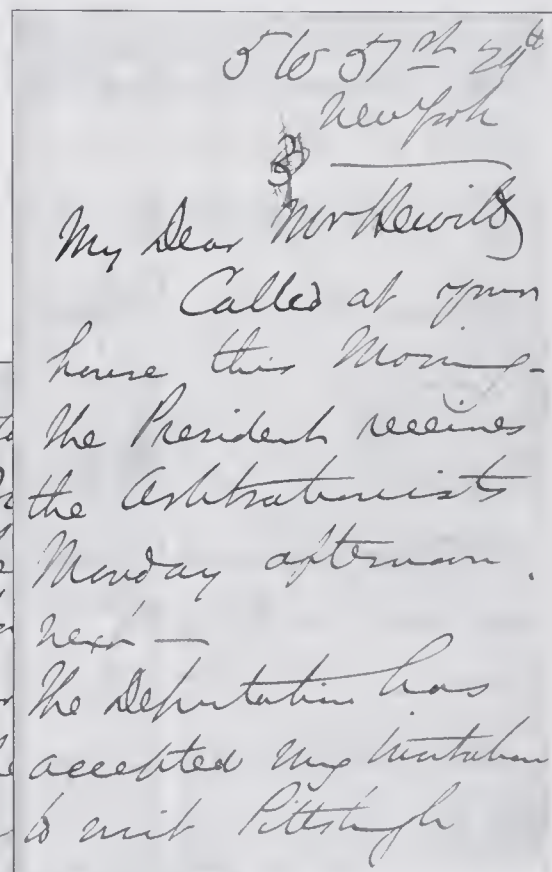 5 W 51st 29th
New York
My Dear Mr Hewitt
Called at your
house this Morning -
The President receives
the Arbitrationists
Monday afternoon.
next —
The Deputation has
accepted my invitation
to visit Pittsburgh